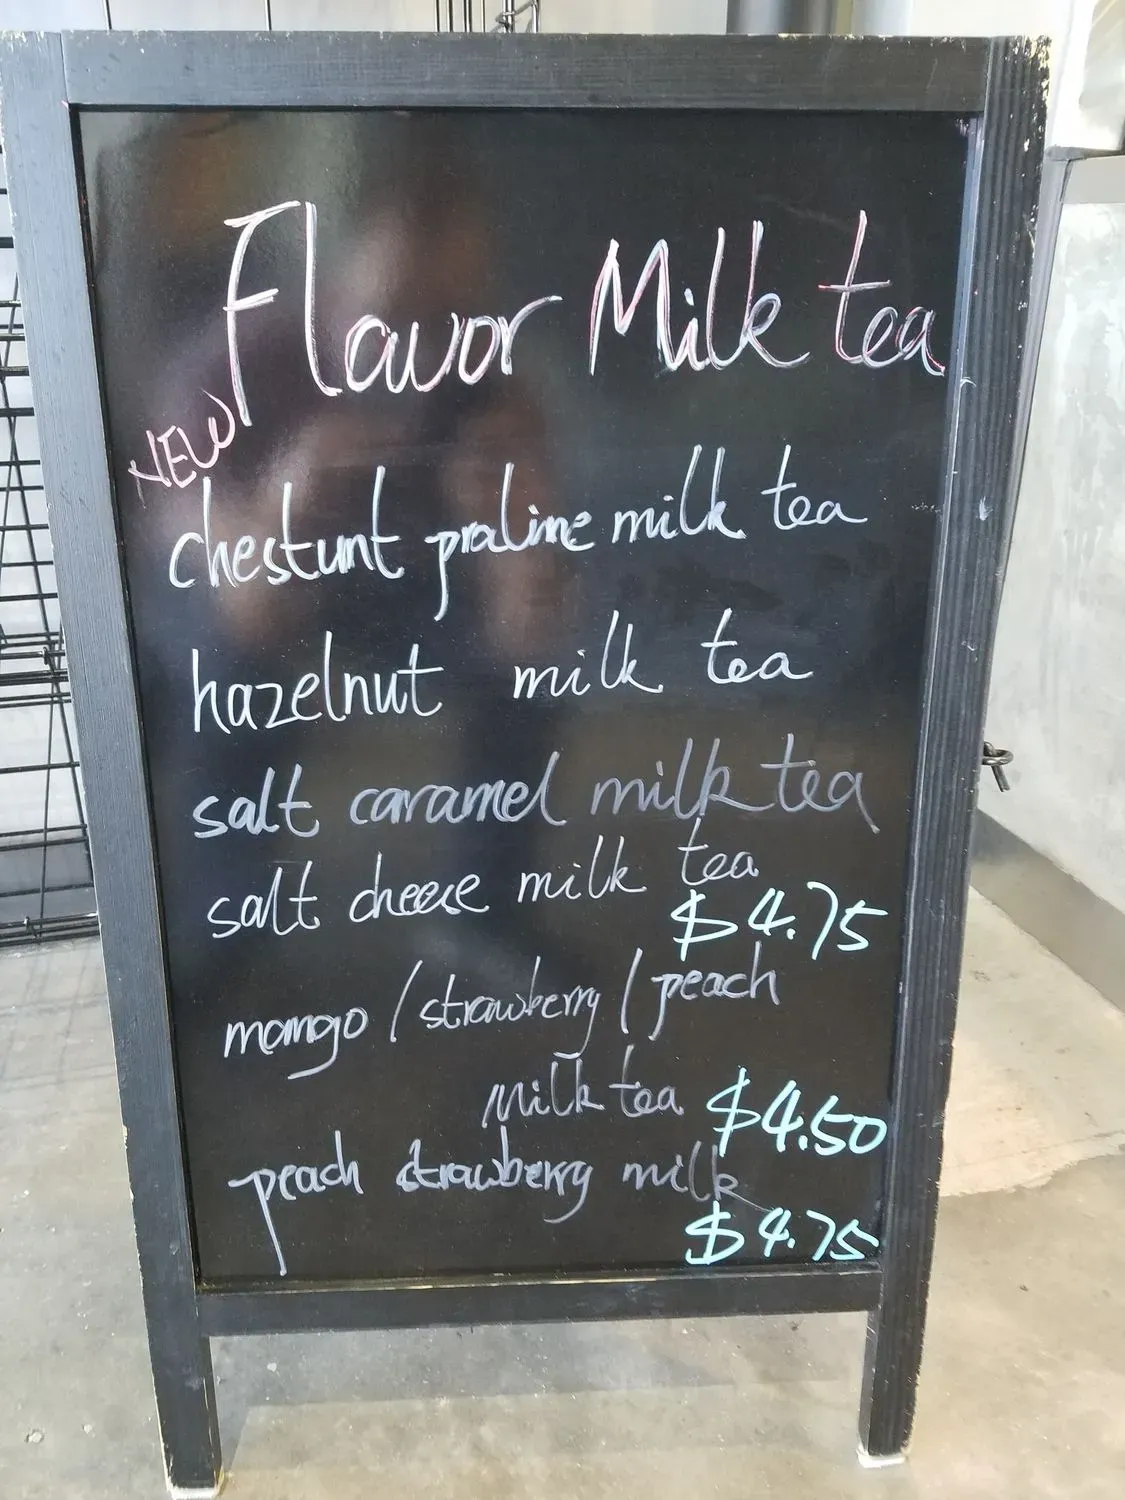 Flavor Milk tea
NEW
chestunt praline milk tea
hazelnut milk tea
salt caramel milk tea
salt cheese milk tea
$4.75
mango / strawberry / peach
Milk tea $4.50
peach strawberry milk
$4.75